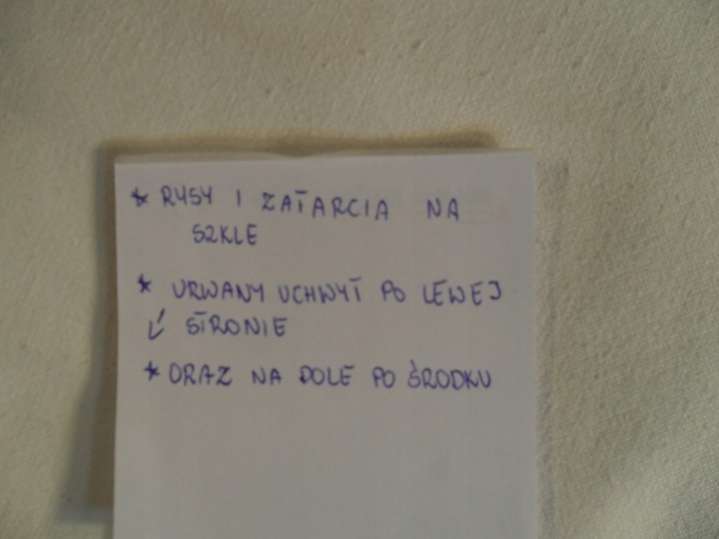 * RYSY I ZATARCIA NA
SZKLE
* URWANY UCHWYT PO LEWEJ
↙ STRONIE
* ORAZ NA DOLE PO ŚRODKU